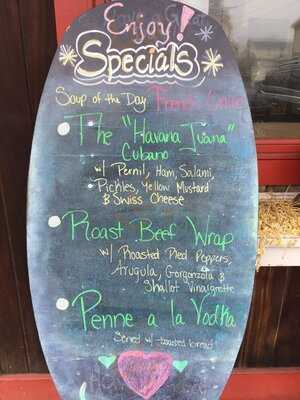 Enjoy!
Specials
Soup of the Day French Onion
The "Havana Juana"
Cubano
w/ Pernil, Ham, Salami,
Pickles, Yellow Mustard
& Swiss Cheese
Roast Beef Wrap
w/ Roasted Red Peppers,
Arugula, Gorgonzola &
Shallot Vinaigrette
Penne a la Vodka
Served w/ toasted bread!